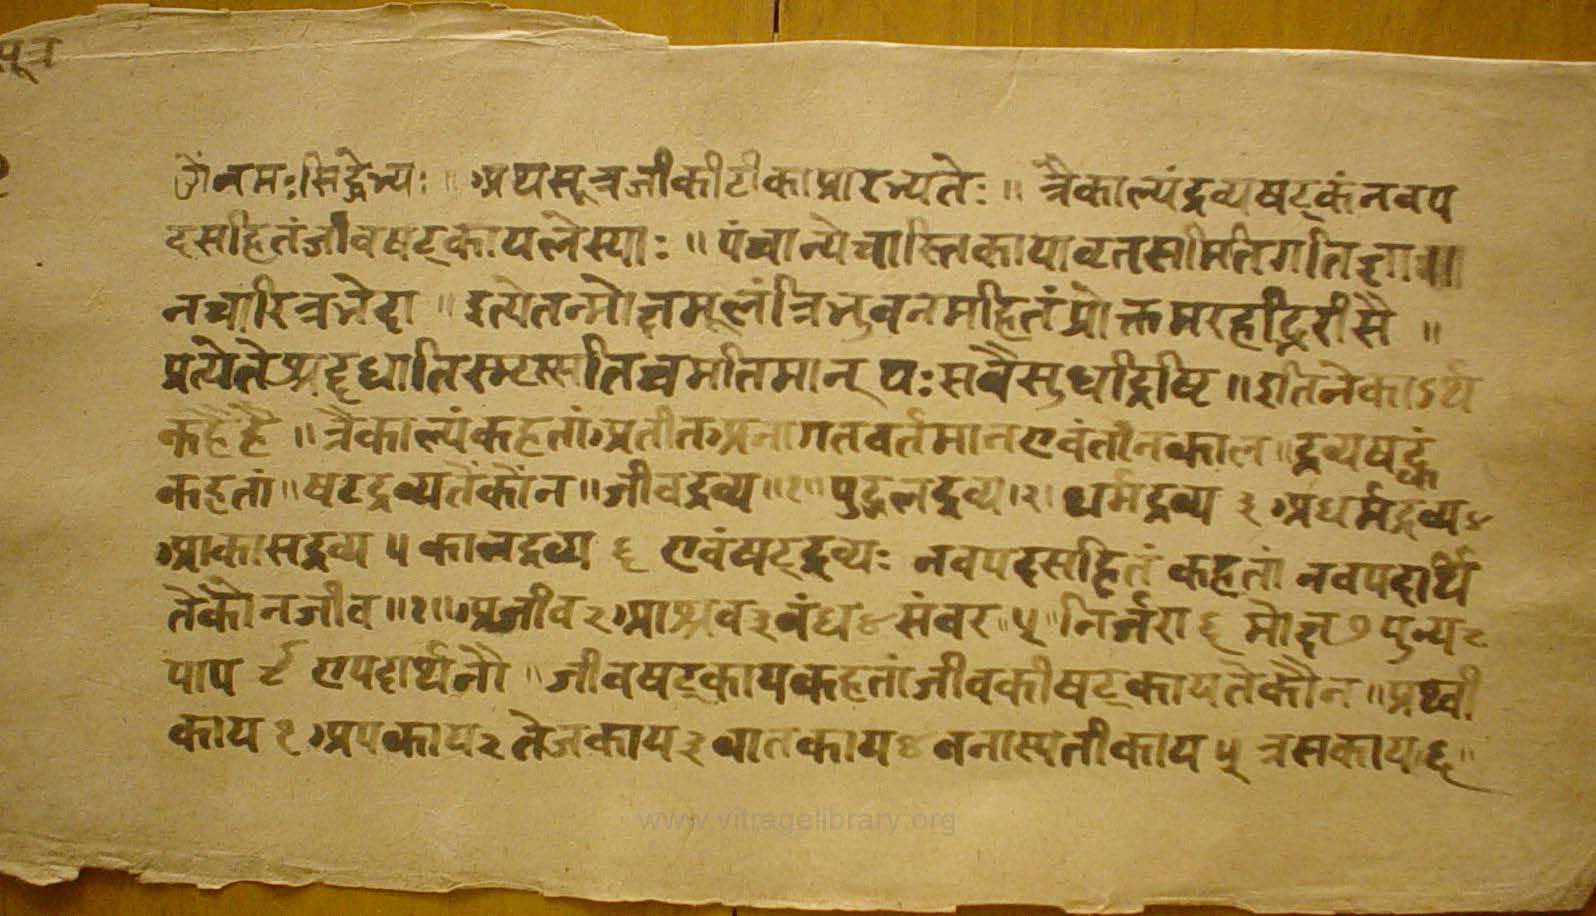 सूत्र
ॐ नमःसिद्धेभ्यः ॥ अथसूत्रजीकीटीकाप्रारभ्यतेः ॥ त्रैकाल्यंद्रव्यषट्कंनवप
दसहितंजीवषट्कायलेस्याः ॥ पंचान्येचास्तिकायाव्रतसमितिगतिज्ञा॥
नचारित्रभेदा ॥ इत्येतन्मोक्षमूलंत्रिभुवनमहितंप्रोक्तमरहद्भिरीसै ॥
प्रत्येतिश्रद्दधातिस्पृसतिचमतिमान् यःसवैसुधद्रिष्टि ॥ इति
कहैहै ॥ त्रैकाल्यंकहतांअतीतअनागतवर्तमानएवंतीनकाल ॥ द्रव्यषट्कं
कहतां ॥ षटद्रव्यतेकौंन ॥ जीवद्रव्य ॥१॥ पुद्गलद्रव्य ।२। धर्मद्रव्य ३ अधर्मद्रव्य ४
आकासद्रव्य ५ कालद्रव्य ६ एवंषट्द्रव्यः नवपदसहितं कहतां नवपदार्थ
तेकौनजीव ॥१॥ अजीव २ आश्रव ३ बंध ४ संवर ॥ ५ ॥ निर्जरा ६ मोक्ष ७ पुन्य ८
पाप ९ एपदार्थनौ ॥ जीवषट्कायकहतांजीवकीषट्कायतेकौन ॥ प्रथ्वी
काय १ अपकाय २ तेजकाय ३ वातकाय ४ वनास्पतीकाय ५ त्रसकाय ६ ॥
www.vitragelibrary.org